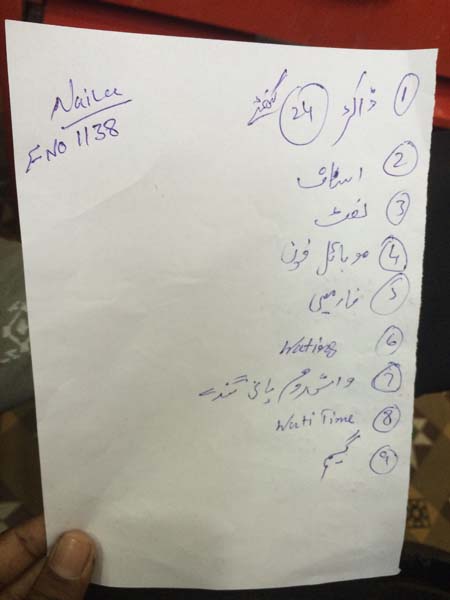 Naila
E NO 1138
① ڈاکٹر 24 گھنٹے
② اسٹاف
③ لفٹ
④ موبائل فون
⑤ فارمیسی
⑥ Wating
⑦ واشروم پانی گندے
⑧ Wati Time
⑨ گیم